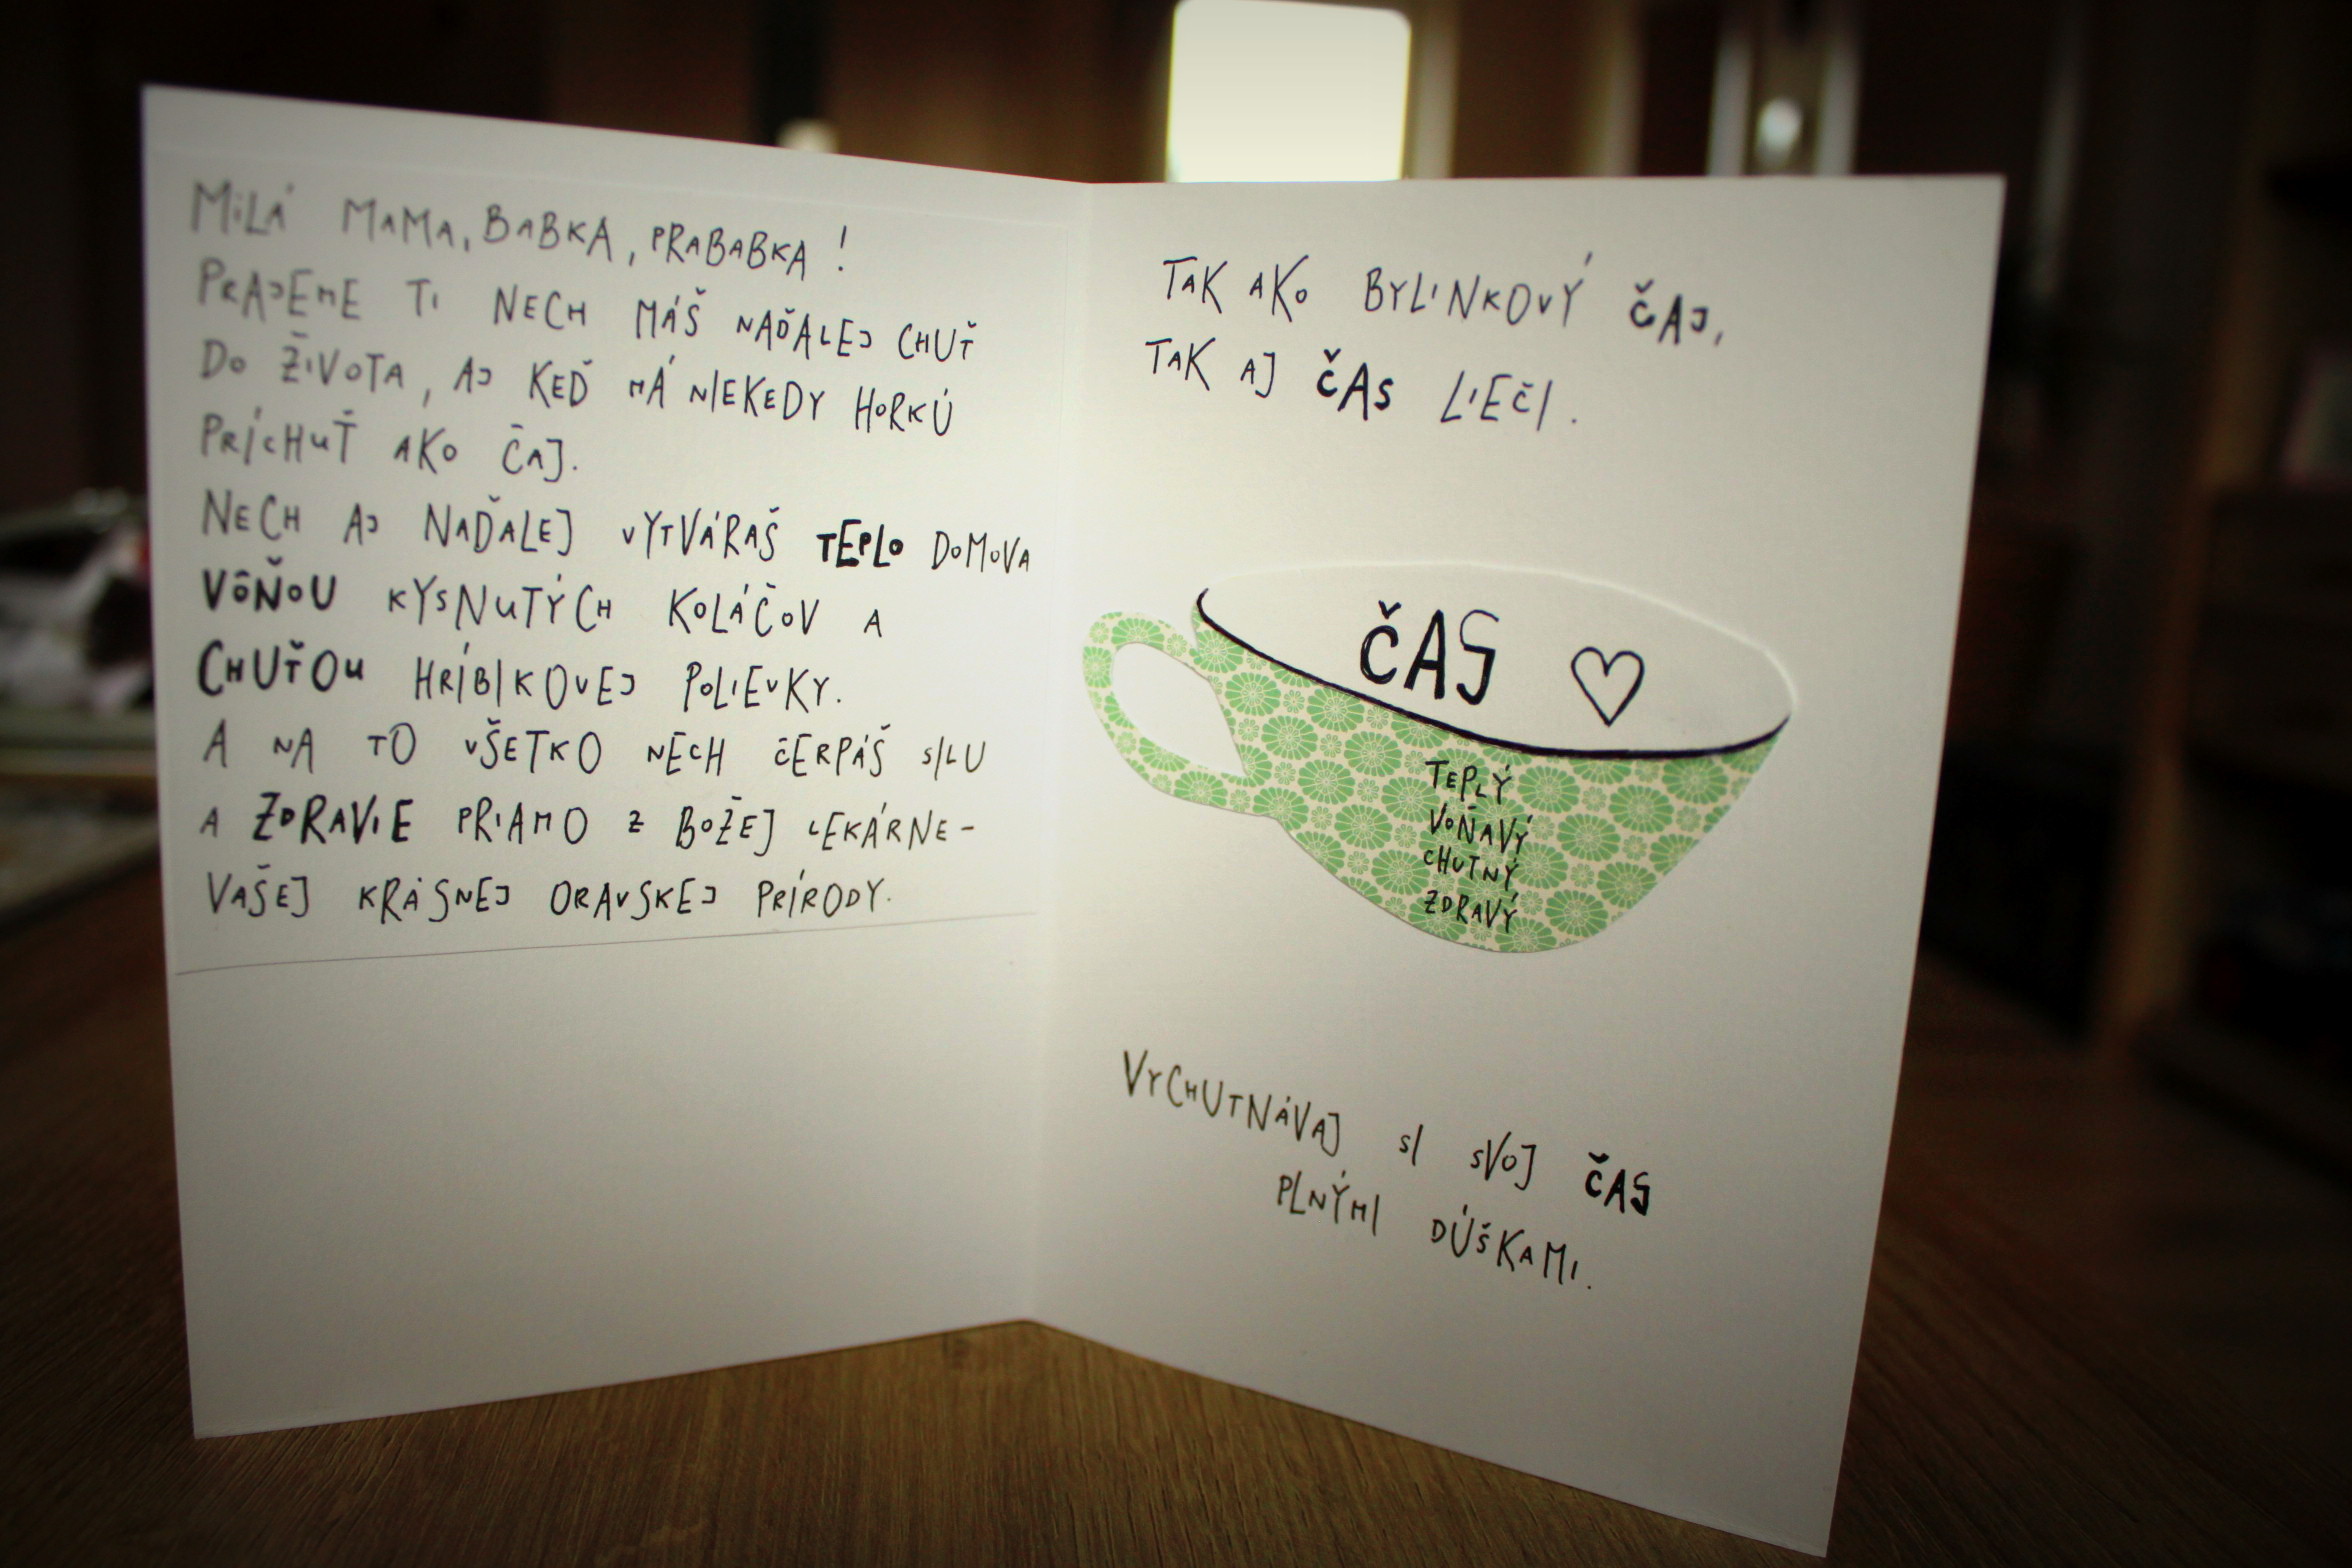 MILÁ MAMA, BABKA, PRABABKA!
PRAJEME TI NECH MÁŠ NAĎALEJ CHUŤ
DO ŽIVOTA, AJ KEĎ MÁ NIEKEDY HORKÚ
PRÍCHUŤ AKO ČAJ.
NECH AJ NAĎALEJ VYTVÁRAŠ TEPLO DOMOVA
VÔŇOU KYSNUTÝCH KOLÁČOV A
CHUŤOU HRÍBIKOVEJ POLIEVKY.
A NA TO VŠETKO NECH ČERPÁŠ SILU
A ZDRAVIE PRIAMO Z BOŽEJ LEKÁRNE-
VAŠEJ KRÁSNEJ ORAVSKEJ PRÍRODY.
TAK AKO BYLINKOVÝ ČAJ,
TAK AJ ČAS LIEČI.
ČAS ♡
TEPLÝ
VOŇAVÝ
CHUTNÝ
ZDRAVÝ
VYCHUTNÁVAJ SI SVOJ ČAS
PLNÝMI DÚŠKAMI.